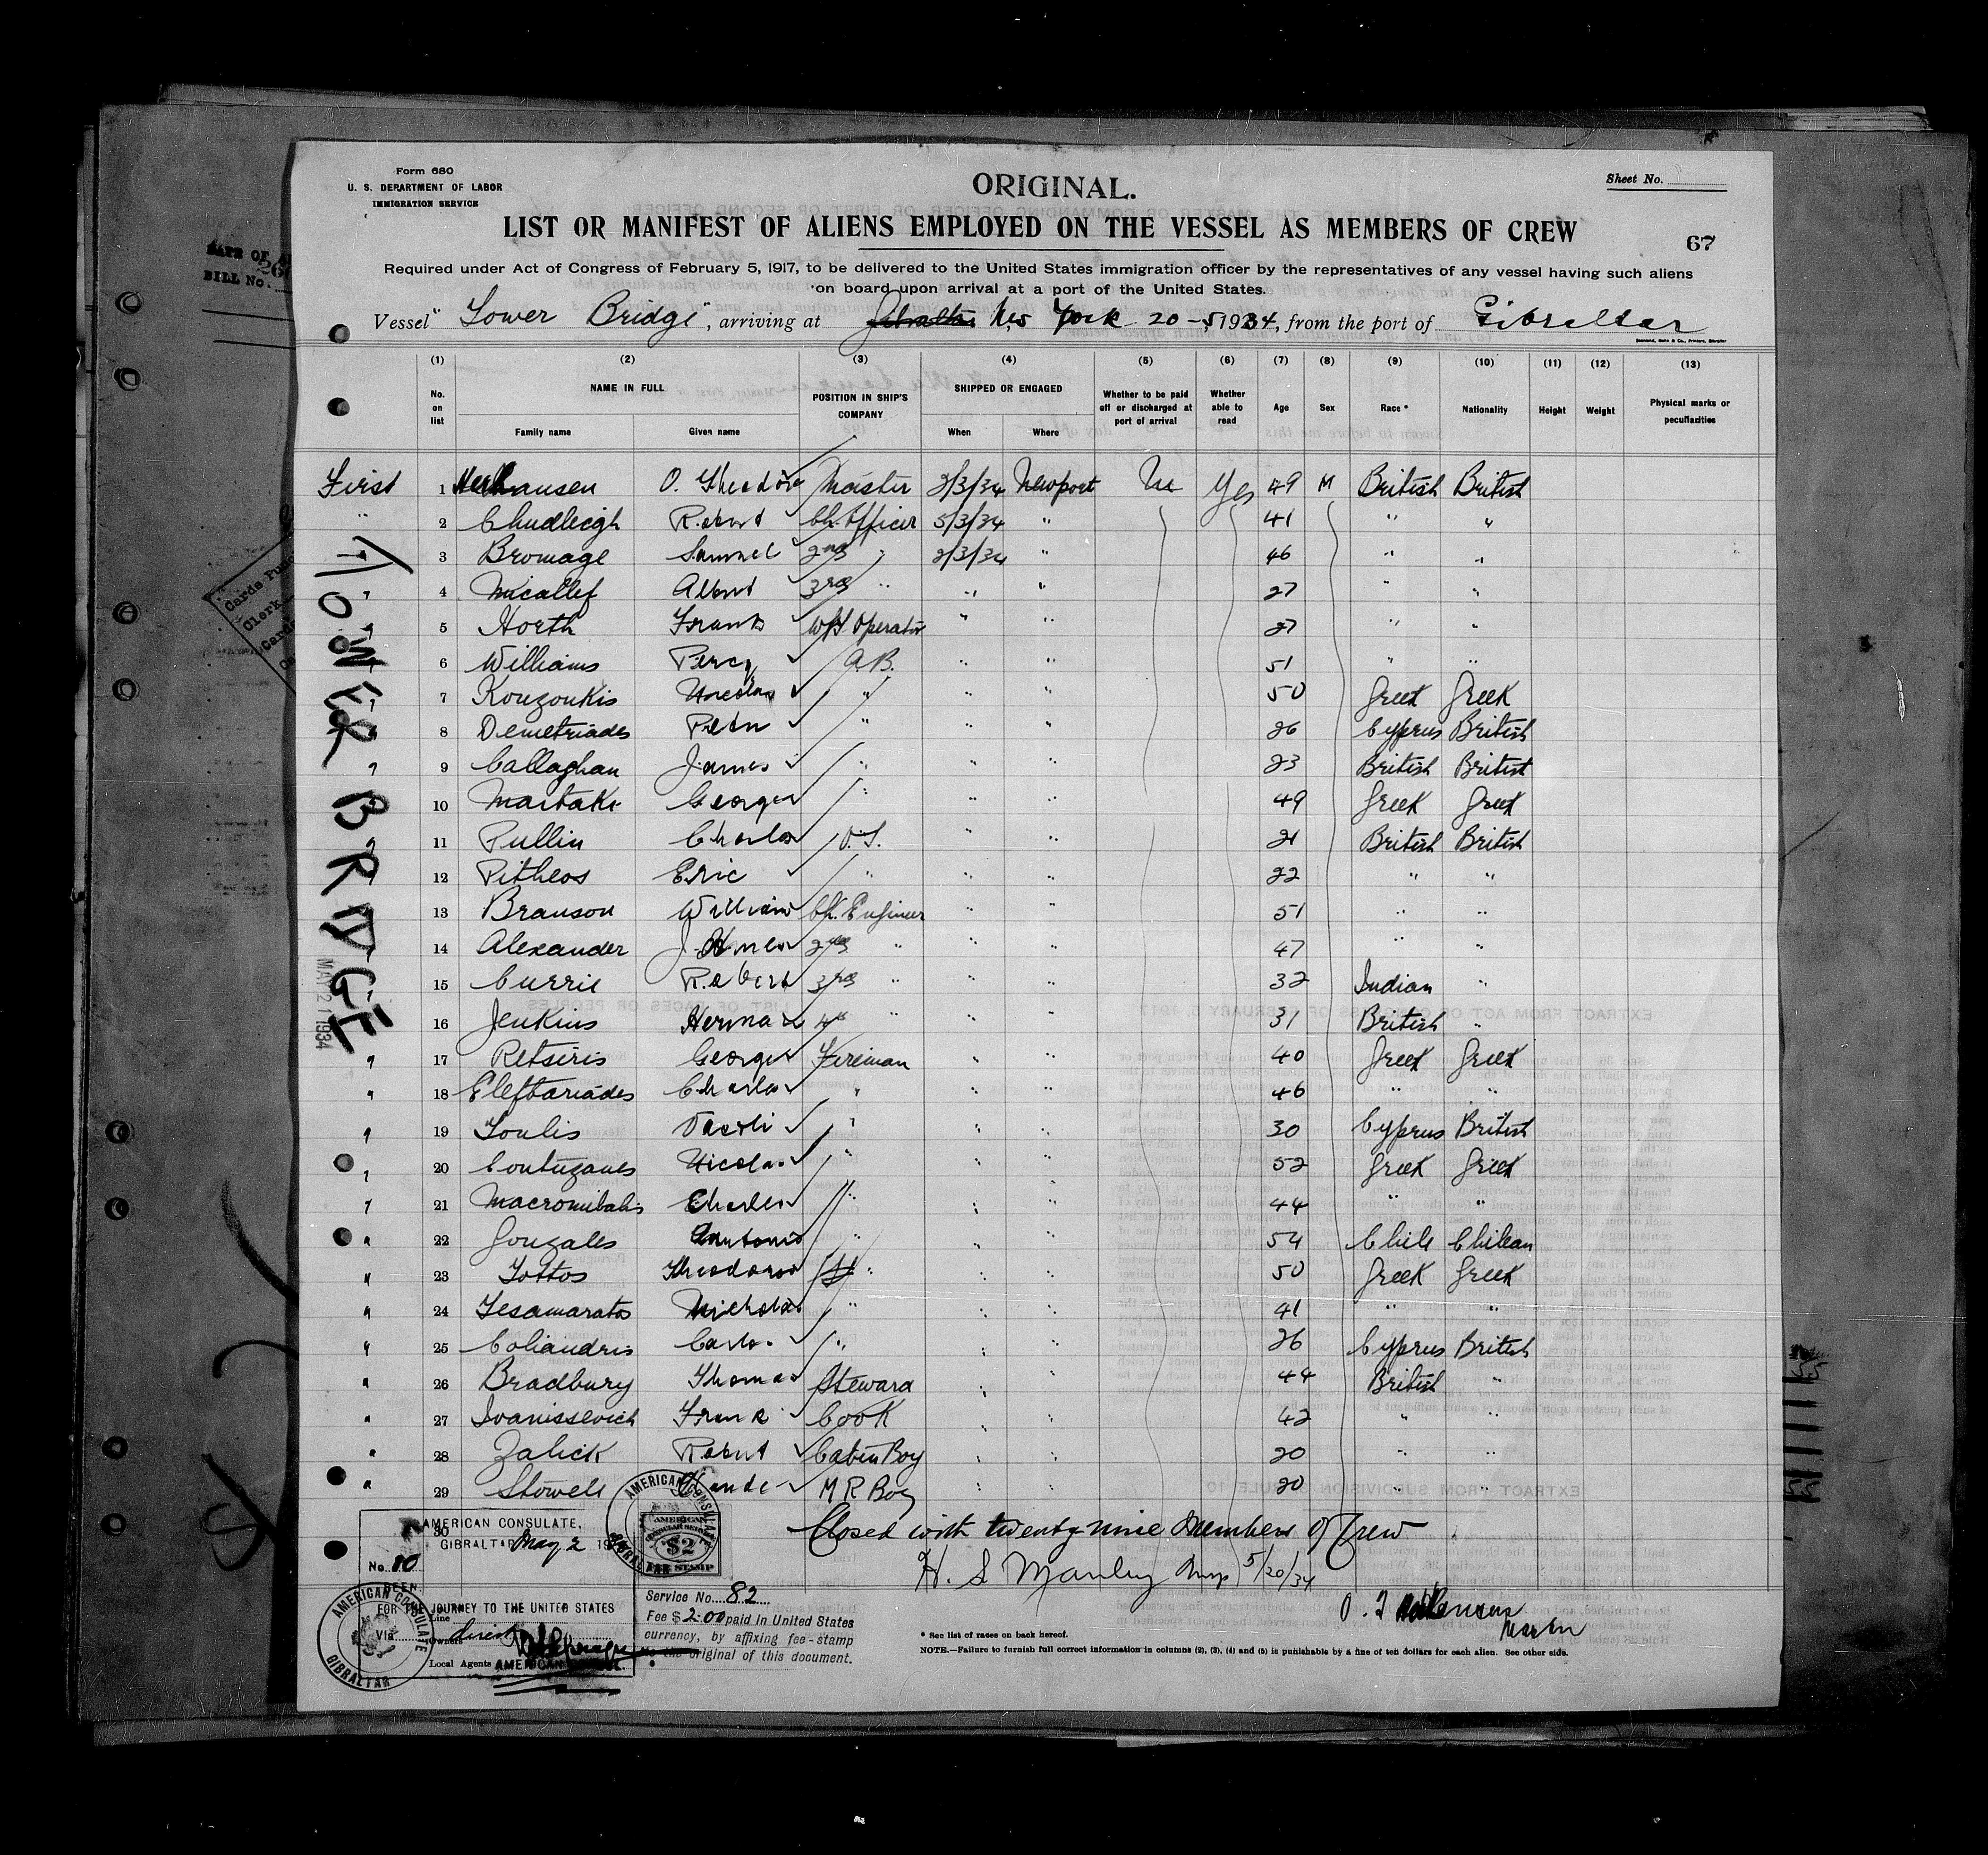 Form 680
U. S. DEPARTMENT OF LABOR
IMMIGRATION SERVICE
ORIGINAL.
Sheet No.
LIST OR MANIFEST OF ALIENS EMPLOYED ON THE VESSEL AS MEMBERS OF CREW
67
Required under Act of Congress of February 5, 1917, to be delivered to the United States immigration officer by the representatives of any vessel having such aliens
on board upon arrival at a port of the United States.
Vessel "Tower Bridge", arriving at Gibraltar New York 20-5, 1934, from the port of Gibraltar
(1) (2) (3) (4) (5) (6) (7) (8) (9) (10) (11) (12) (13)
No. on list NAME IN FULL Family name Given name POSITION IN SHIP'S COMPANY SHIPPED OR ENGAGED When Where Whether to be paid off or discharged at port of arrival Whether able to read Age Sex Race * Nationality Height Weight Physical marks or peculiarities
First 1 O. Theodore Master 2/3/34 Newport No Yes 49 M British British
" 2 Chudleigh Robert Ch. Officer 5/3/34 " 41 " "
3 Bromage Samuel 2nd " 2/3/34 " 46 " "
4 Micallef Albert 3rd " " " 27 " "
5 North Frank W/T Operator " " 27 " "
6 Williams Percy A.B. " " 51 " "
7 Kouzoukis Nicolas " " " 50 Greek Greek
8 Demetriades Peter " " " 26 Cyprus British
9 Callaghan James " " " 23 British British
10 Maitaki George " " " 49 Greek Greek
11 Pullin Charles O.S. " " 21 British British
12 Pitheos Eric " " " 22 " "
13 Branson William Ch. Engineer " " 51 " "
14 Alexander J. 2nd " " " 47 " "
15 Currie Robert 3rd " " " 32 Indian "
16 Jenkins Herman 4th " " " 31 British "
17 Retsiris George Fireman " " 40 Greek Greek
18 Eleftariades Charles " " " 46 " "
19 Toulis Vasili " " " 30 Cyprus British
20 Contuzanes Nicolas " " " 52 Greek Greek
21 Charles " " " 44 " "
22 Gonzales Antonio " " " 54 Chile Chilean
23 Tottos Theodoros " " " 50 Greek Greek
24 Tesamaratos Nicholas " " " 41 " "
25 Coliandris Carlo " " " 26 Cyprus British
26 Bradbury Thomas Steward " " 44 British "
27 Ivanissevich Frank Cook " " 42 " "
28 Zalick Robert Cabin Boy " " 20 " "
29 Stowell Claude M R Boy " " 20 " "
30
TOWER BRIDGE
MAY 21 1934
Closed with twenty nine Members of Crew
H. S Manley Insp 5/20/34
O. T
Master
AMERICAN CONSULATE,
GIBRALTAR May 2 19
No. 80
SEEN
FOR THE JOURNEY TO THE UNITED STATES
Via direct
Line
Owners
Local Agents
AMERICAN
AMERICAN CONSULATE GIBRALTAR
AMERICAN CONSULATE GIBRALTAR
AMERICAN CONSULAR SERVICE
$2
FEE STAMP
Service No. 82
Fee $ 2.00 paid in United States
currency, by affixing fee-stamp
to the original of this document.
* See list of races on back hereof.
NOTE.—Failure to furnish full correct information in columns (2), (3), (4) and (5) is punishable by a fine of ten dollars for each alien. See other side.